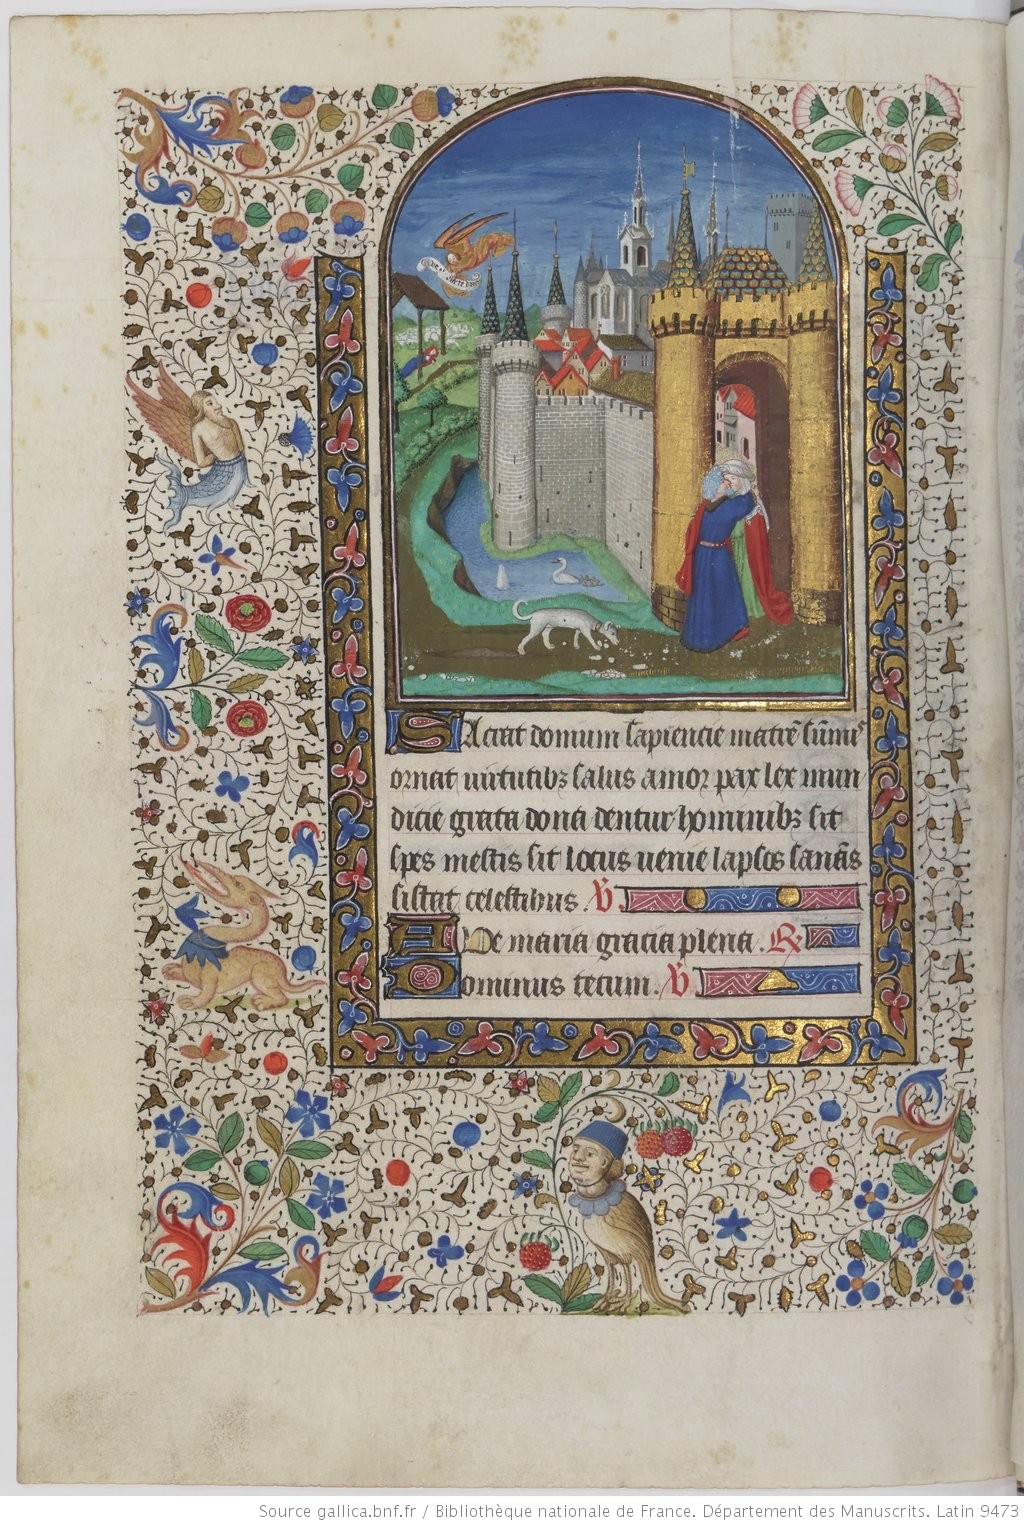 Sacrat domum sapiencie matrē sūmi⁹
ornat uirtutibꝫ salus amor pax lex mun
dicie grata dona dentur hominibꝫ sit
spes mestis sit locus uenie lapsos
sistat celestibus. ℣.
Aue maria gracia plena. ℟
Dominus tecum. ℣
Source gallica.bnf.fr / Bibliothèque nationale de France. Département des Manuscrits. Latin 9473